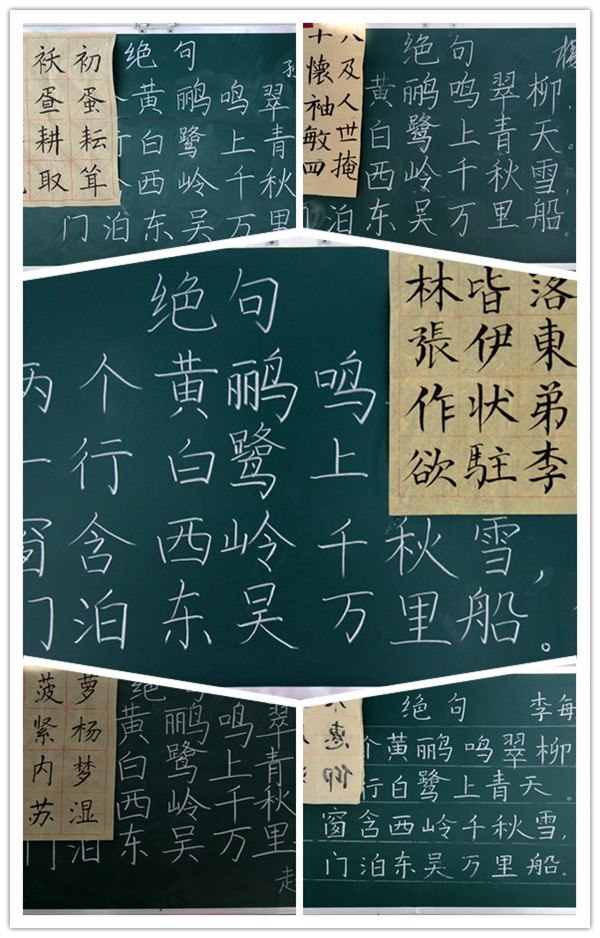 袄 初
蛋
耕 耘
取 耸
绝句
黄鹂鸣翠
行白鹭上青
西岭千秋
门泊东吴万里
懷 及
袖 人
敏 世
四 掩
绝句
黄鹂鸣翠柳,
白鹭上青天。
西岭千秋雪,
泊东吴万里船。
绝句
两个黄鹂鸣
一行白鹭上
窗含西岭千秋雪,
门泊东吴万里船。
林 皆 落
張 伊 東
作 状 弟
欲 駐 李
菠 萝
紧 杨
内 梦
苏 湿
绝句
黄鹂鸣翠
白鹭上青
西岭千秋
门泊东吴万里
惠
仰
绝句 李敏
个黄鹂鸣翠柳
行白鹭上青天。
窗含西岭千秋雪,
门泊东吴万里船。